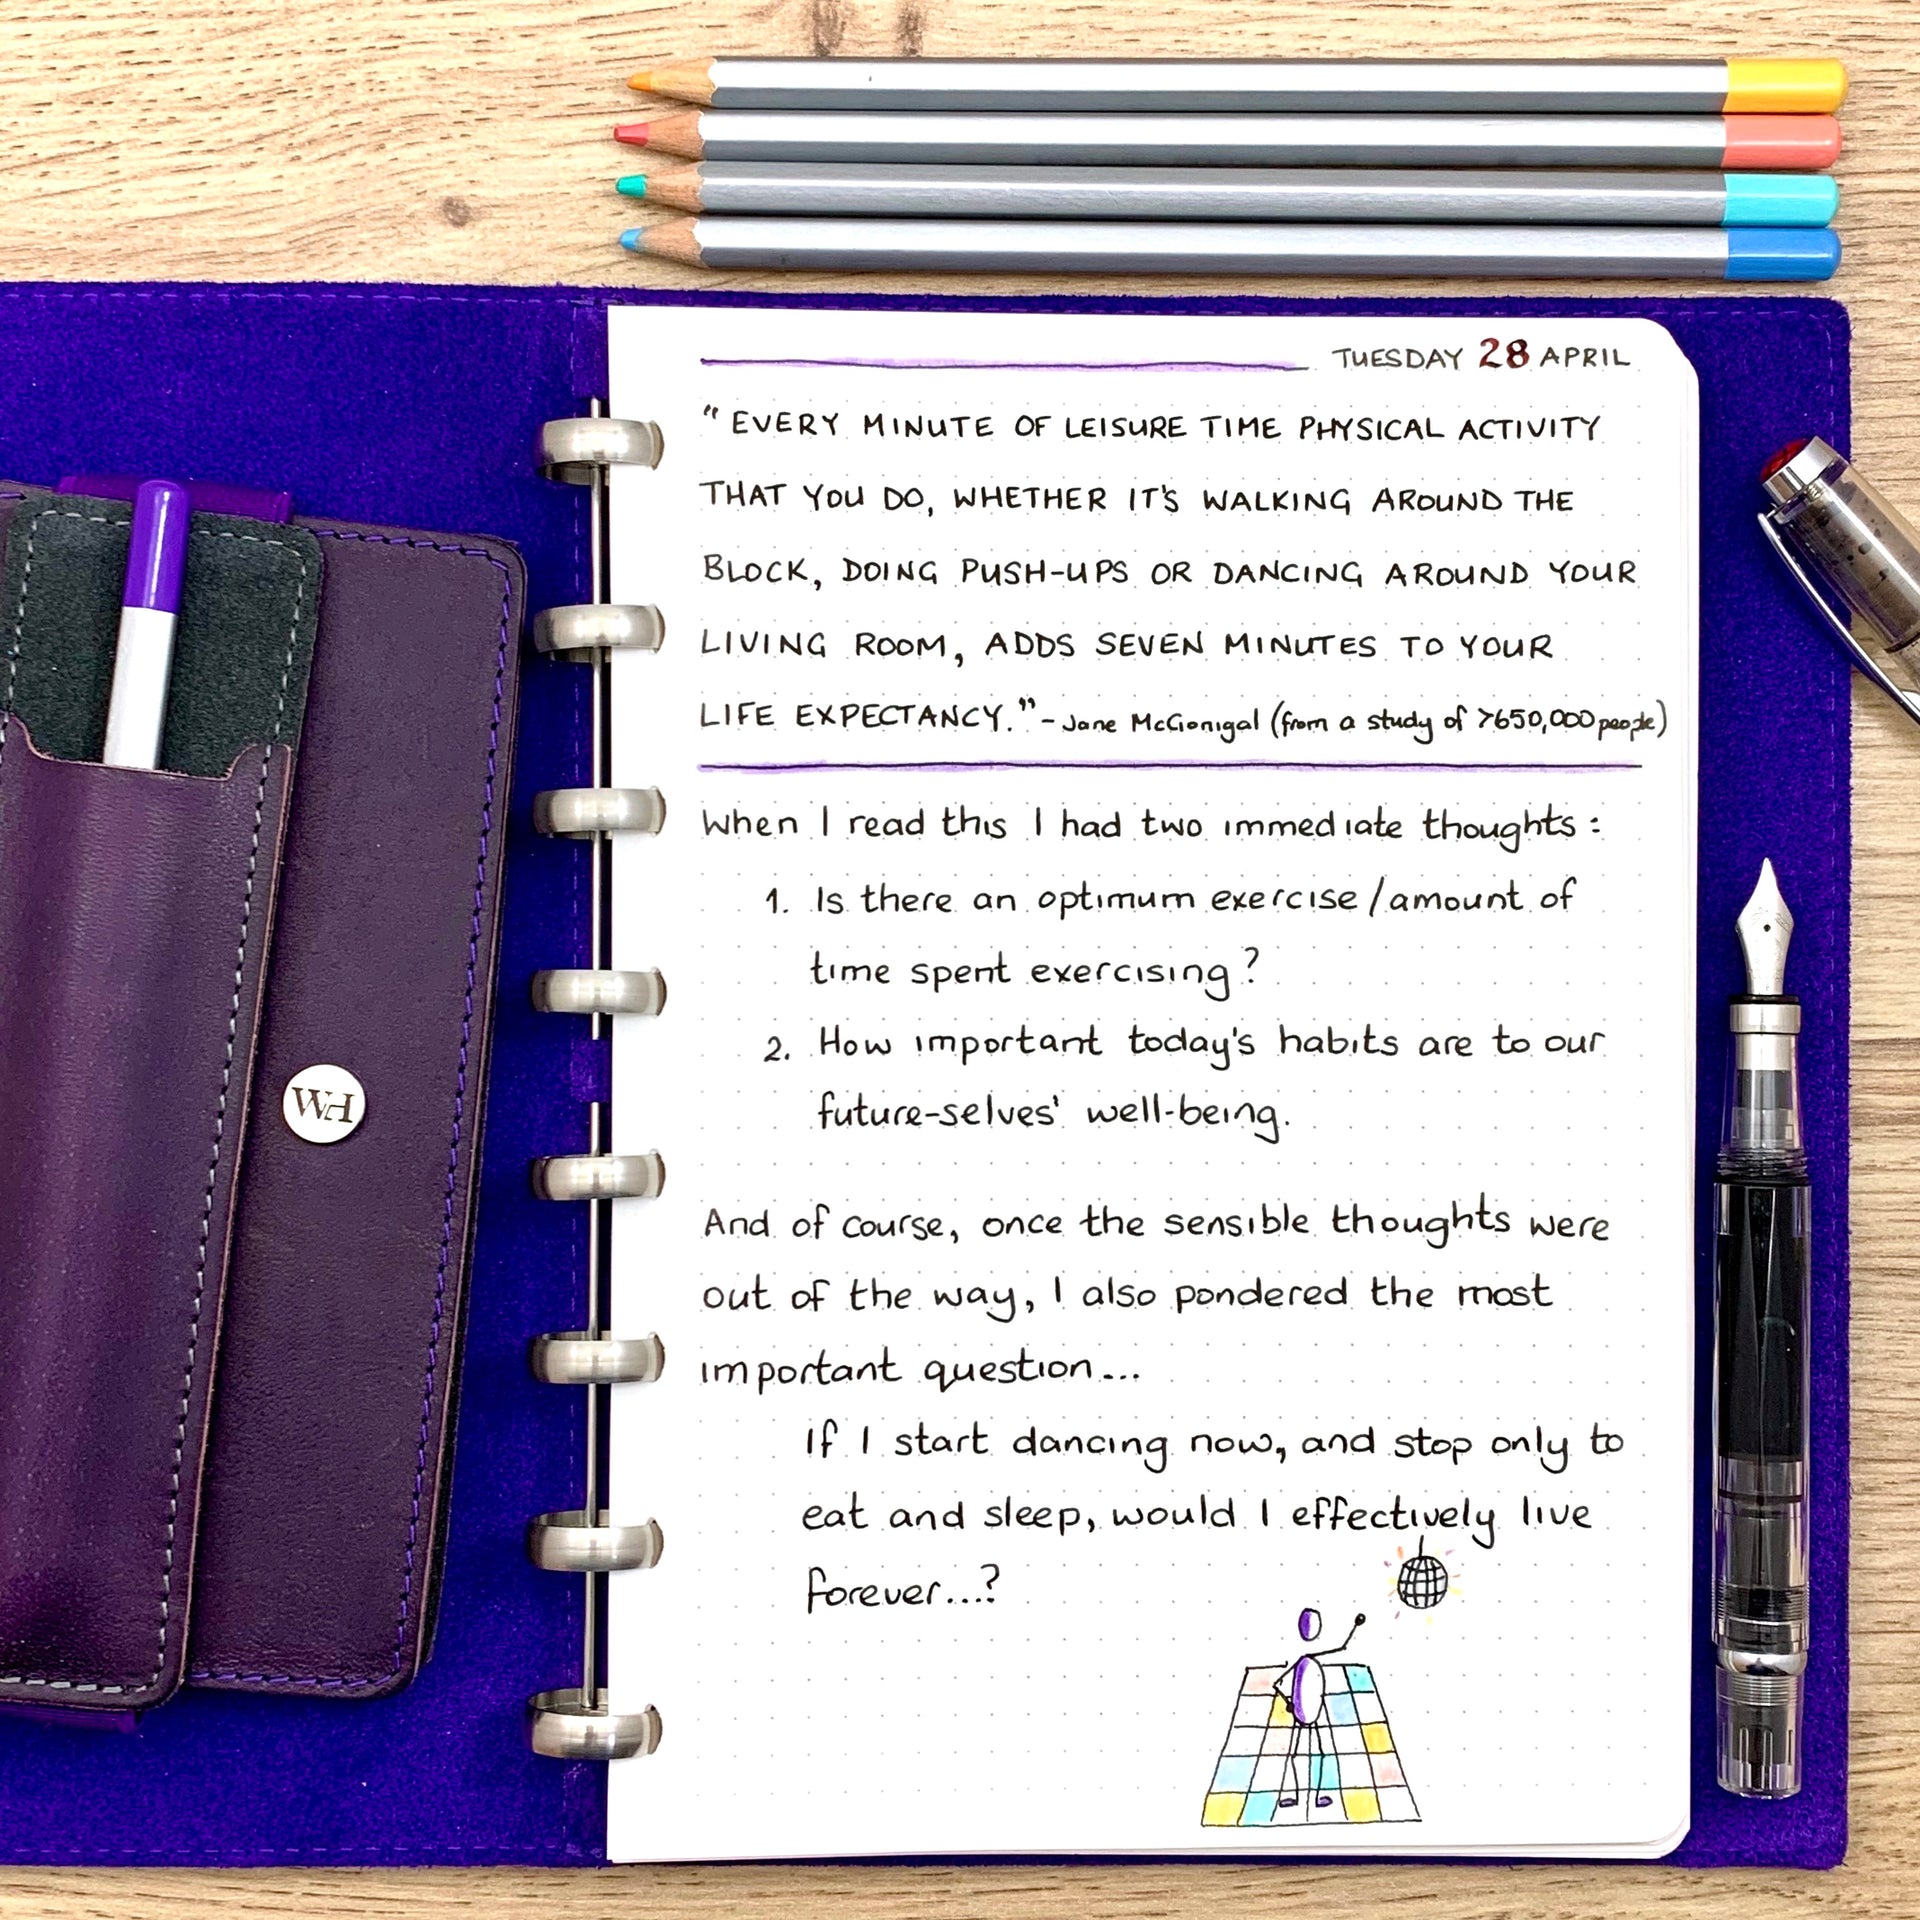 TUESDAY 28 APRIL
“EVERY MINUTE OF LEISURE TIME PHYSICAL ACTIVITY
THAT YOU DO, WHETHER IT'S WALKING AROUND THE
BLOCK, DOING PUSH-UPS OR DANCING AROUND YOUR
LIVING ROOM, ADDS SEVEN MINUTES TO YOUR
LIFE EXPECTANCY.” - Jane McGonigal (from a study of >650,000 people)
When I read this I had two immediate thoughts:
1. Is there an optimum exercise/amount of
time spent exercising?
2. How important today's habits are to our
future-selves' well-being.
And of course, once the sensible thoughts were
out of the way, I also pondered the most
important question...
If I start dancing now, and stop only to
eat and sleep, would I effectively live
forever...?
WH